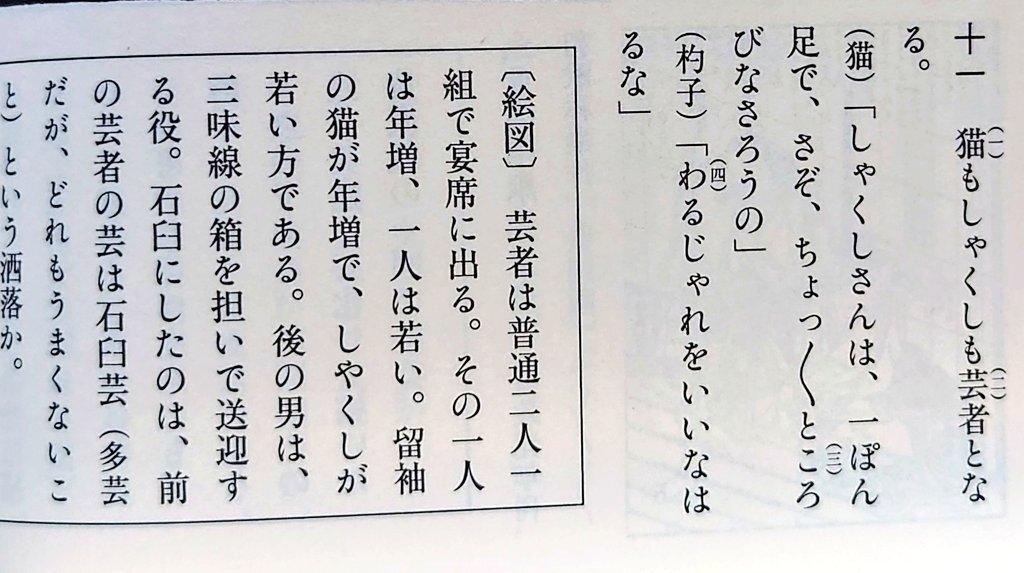 十一　猫もしゃくしも芸者とな
(一)
(二)
る。
（猫）「しゃくしさんは、一ぽん
足で、さぞ、ちょっ〱ところ
(三)
びなさろうの」
（杓子）「わるじゃれをいいなは
(四)
るな」
〔絵図〕　芸者は普通二人一
組で宴席に出る。その一人
は年増、一人は若い。留袖
の猫が年増で、しやくしが
若い方である。後の男は、
三味線の箱を担いで送迎す
る役。石臼にしたのは、前
の芸者の芸は石臼芸（多芸
だが、どれもうまくないこ
と）という洒落か。